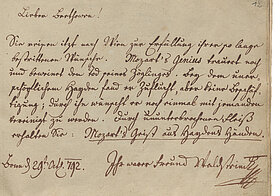 12
Lieber Beethowen!
Sie reisen itzt nach Wien zur Erfüllung ihrer so lange
bestrittenen Wünsche. Mozart's Genius trauert noch
und beweinet den Tod seines Zöglinges. bey dem uner-
schöpflichem Hayden fand er Zuflucht, aber keine Beschäf-
tigung; durch ihn wünscht er noch einmal mit jemanden
vereinigt zu werden. Durch ununterbrochenen Fleiß
erhalten Sie: Mozart's Geist aus Haydens Händen.
Bonn d 29t. Oct. 792. Ihr warer Freund Waldstein